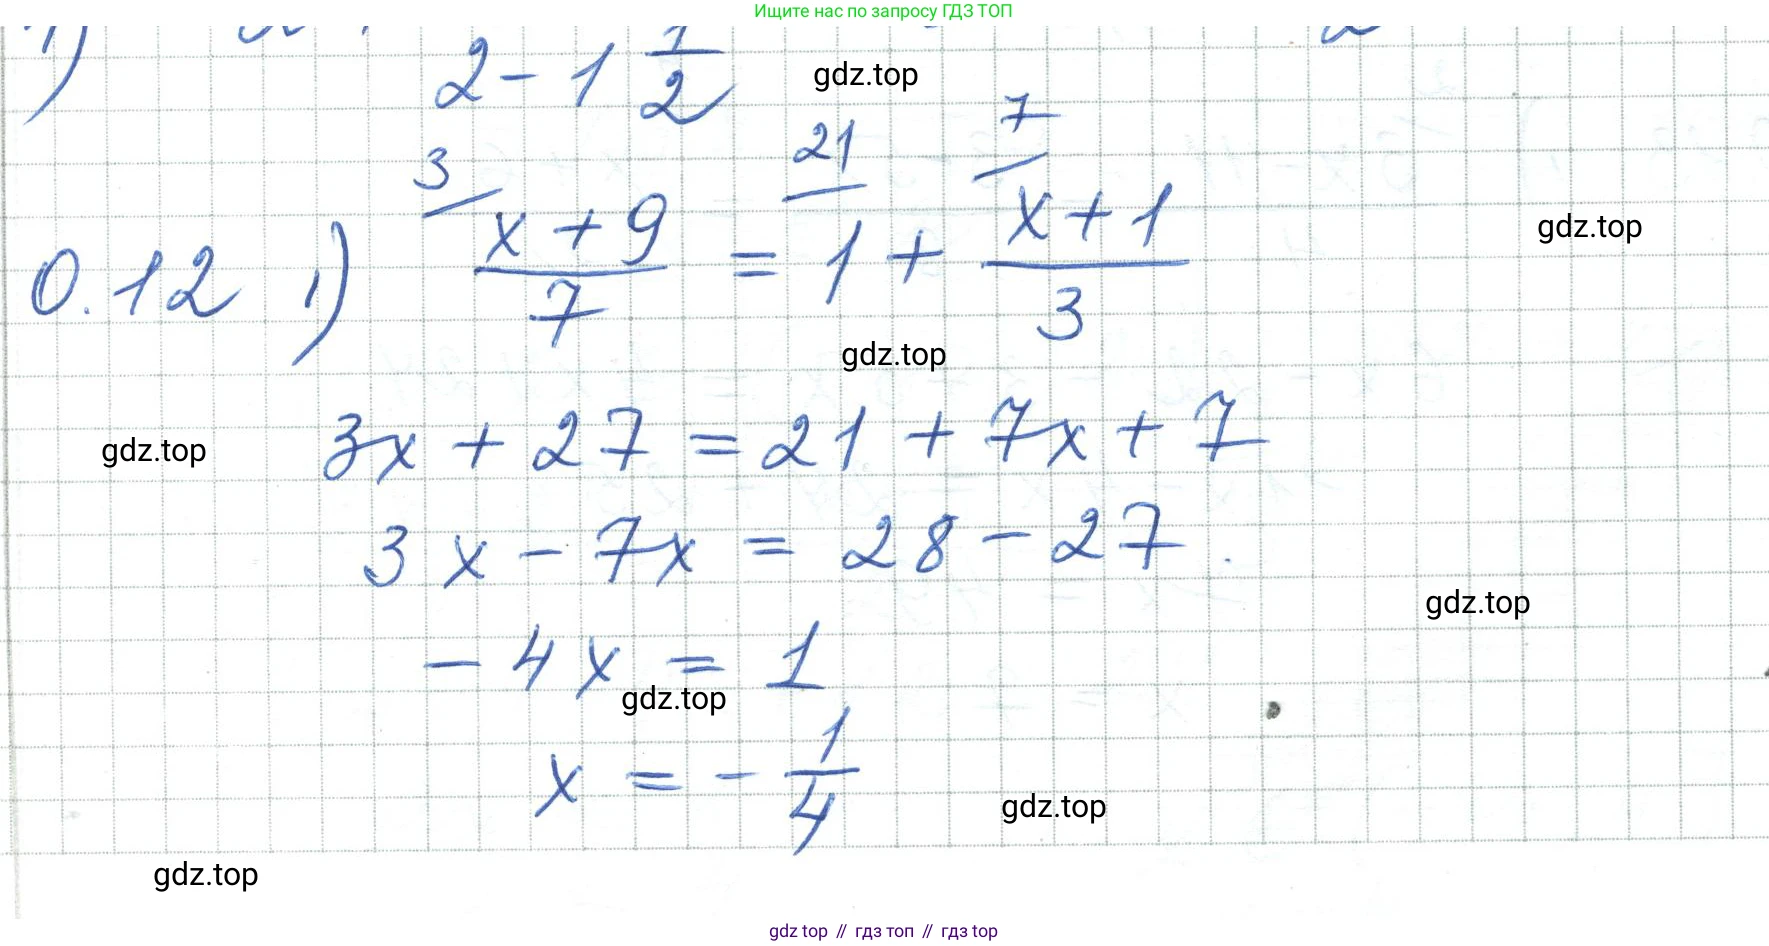 Ищите нас по запросу ГДЗ ТОП
2 - 1 1/2
gdz.top
3 21 7
0.12 1) (x + 9)/7 = 1 + (x + 1)/3
gdz.top
gdz.top
3x + 27 = 21 + 7x + 7
gdz.top
3x - 7x = 28 - 27.
gdz.top
- 4x = 1
gdz.top
x = - 1/4
gdz.top
gdz.top
gdz top // гдз топ // гдз top